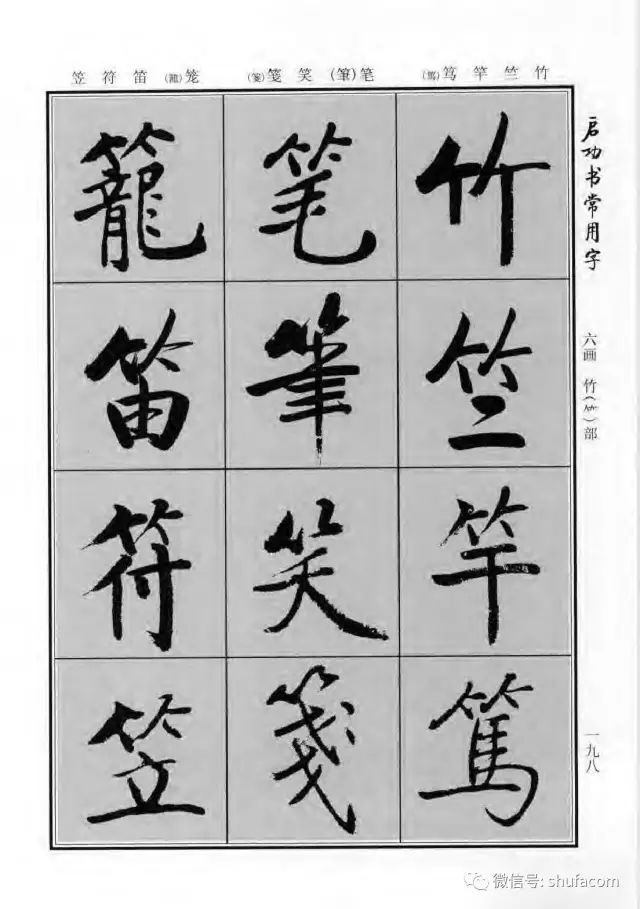 笠 符 笛 (籠)笼 (箋)笺 笑 (筆)笔 (篤)笃 竿 竺 竹
启功书常用字
六画 竹(⺮)部
一九八
竹
竺
竿
篤
笔
筆
笑
箋
籠
笛
符
笠
微信号: shufacom